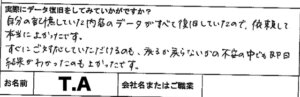 実際にデータ復旧をしてみていかがですか?
自分の自慢していた内容のデータがすべて復旧していたので、依頼して
本当によかったです。
すぐにご対応していただけるのも、戻るか戻らないかの不安の中でも即日
結果がわかったのもよかったです。
お名前 T.A 会社名またはご職業